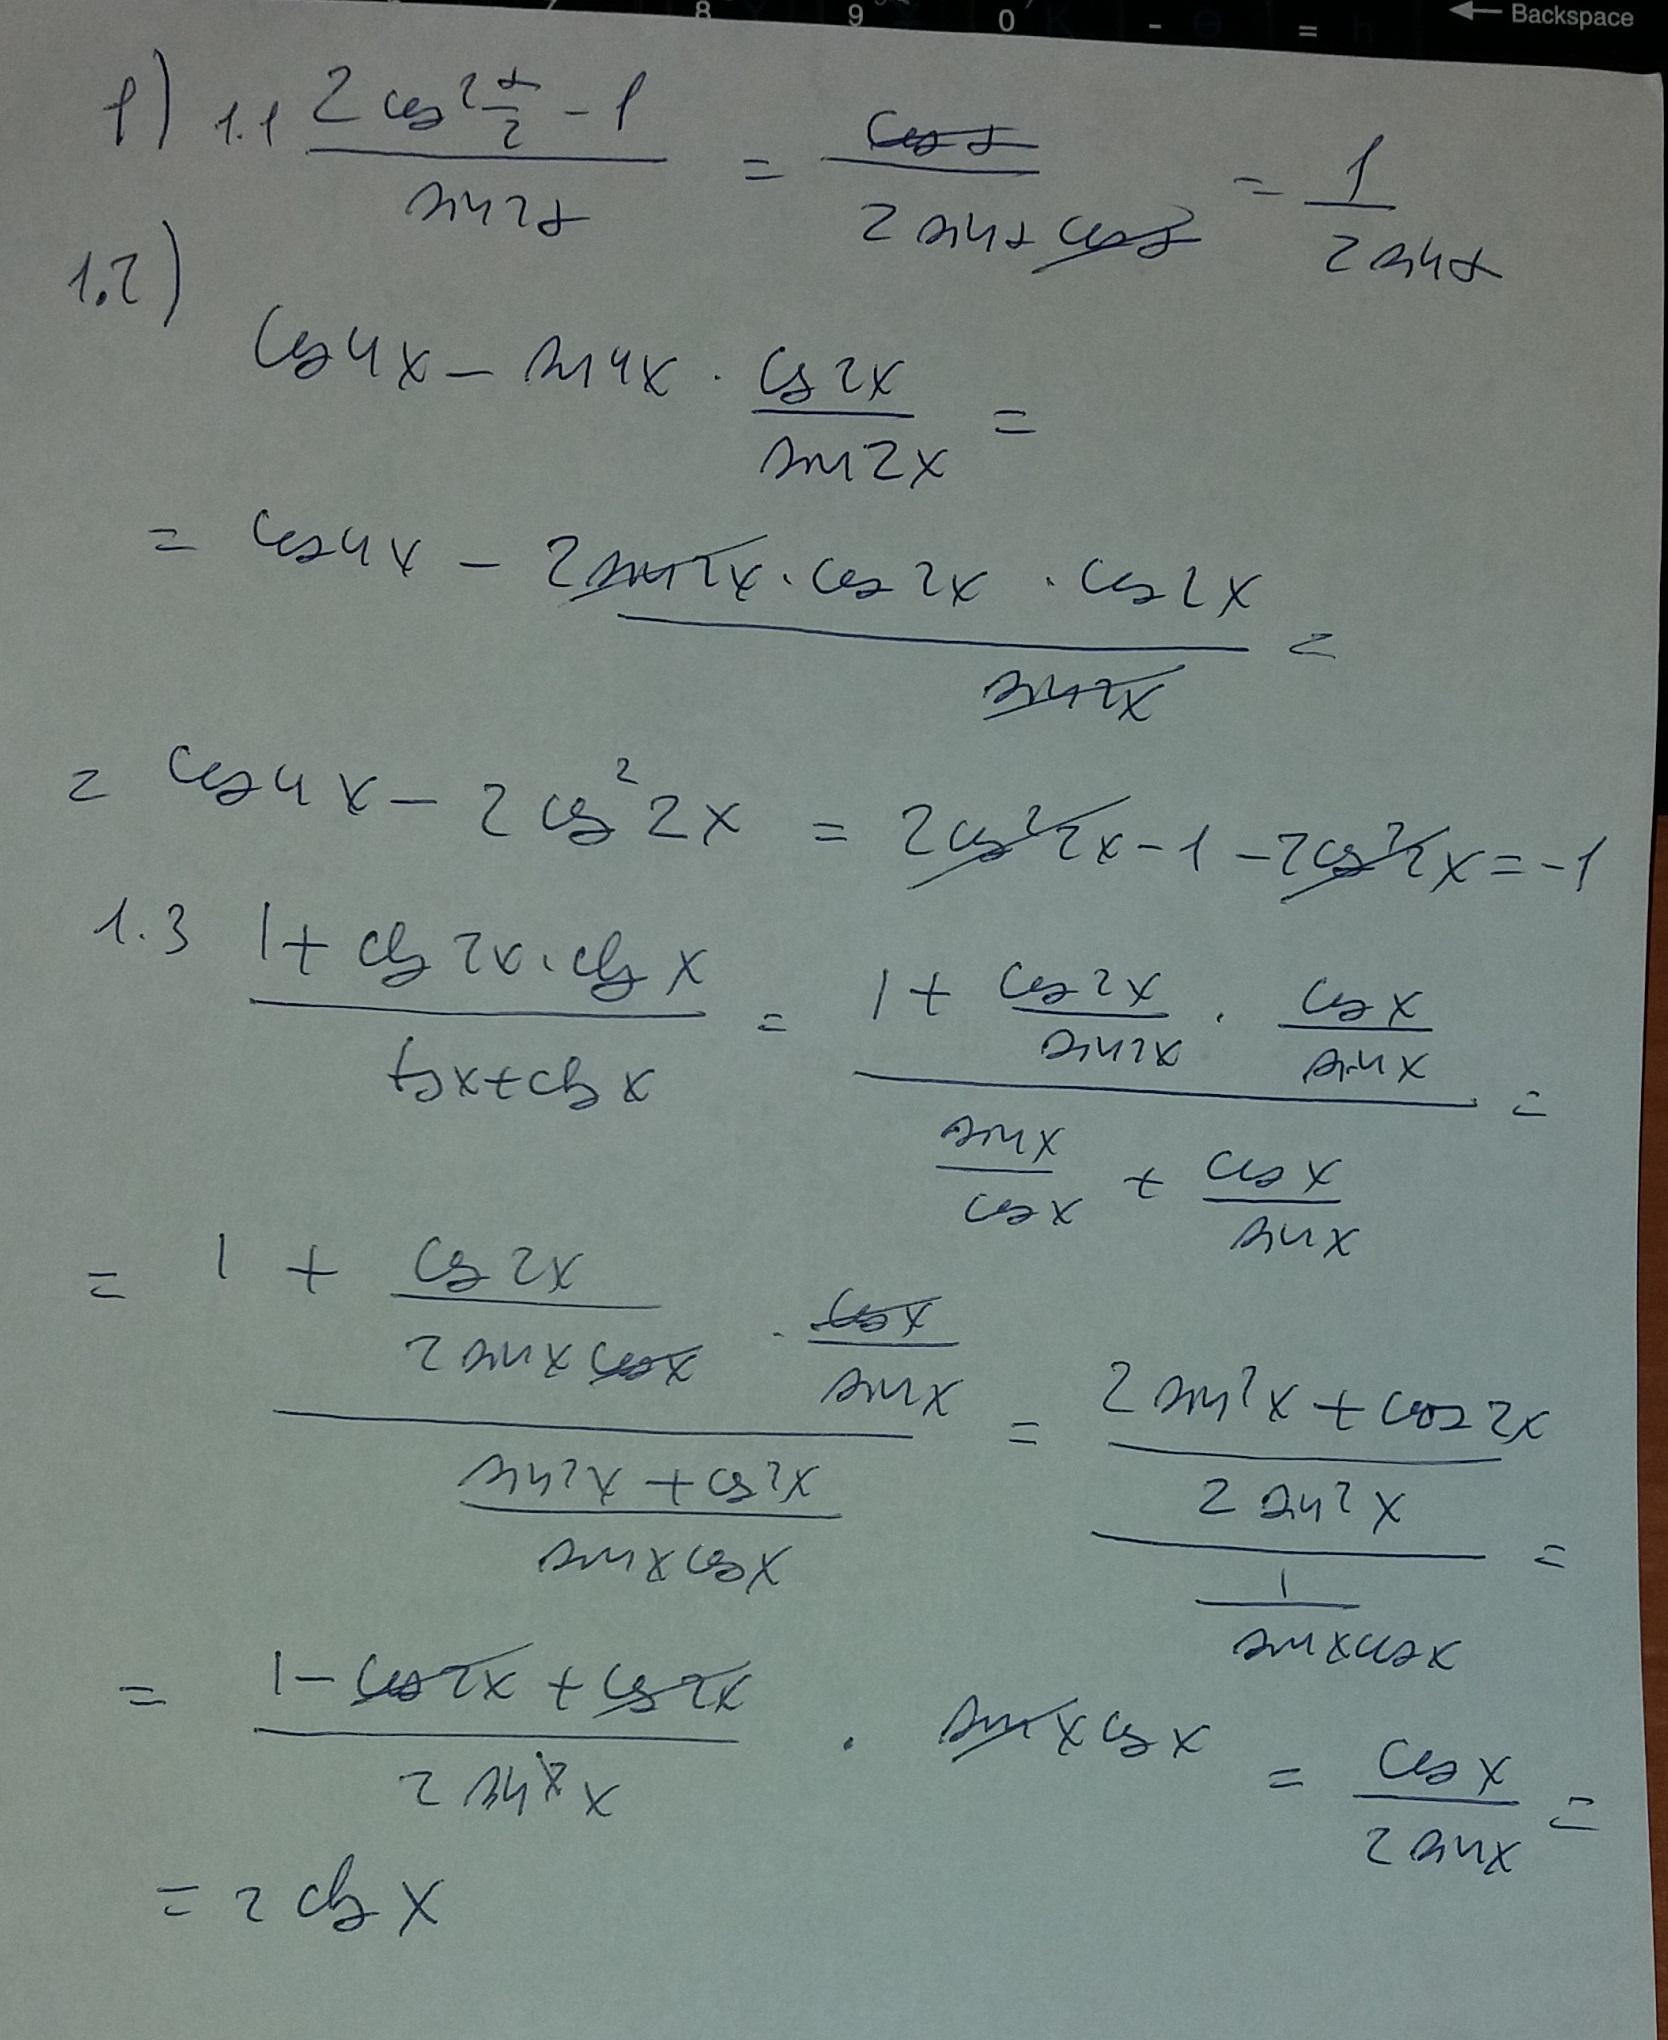 8 9 0 - = ← Backspace
1) 1.1 (2 cos² α/2 - 1) / (sin 2α) = (cos α) / (2 sin α cos α) = 1 / (2 sin α)
1.2)
cos 4x - sin 4x · (cos 2x) / (sin 2x) =
= cos 4x - (2 sin 2x · cos 2x · cos 2x) / (sin 2x) =
= cos 4x - 2 cos² 2x = 2 cos² 2x - 1 - 2 cos² 2x = -1
1.3 (1 + ctg 2x · ctg x) / (tg x + ctg x) = (1 + (cos 2x) / (sin 2x) · (cos x) / (sin x)) / ((sin x) / (cos x) + (cos x) / (sin x)) =
= (1 + (cos 2x) / (2 sin x cos x) · (cos x) / (sin x)) / ((sin² x + cos² x) / (sin x cos x)) = ((2 sin² x + cos 2x) / (2 sin² x)) / (1 / (sin x cos x)) =
= (1 - cos 2x + cos 2x) / (2 sin² x) · sin x cos x = (cos x) / (2 sin x) =
= 2 ctg x